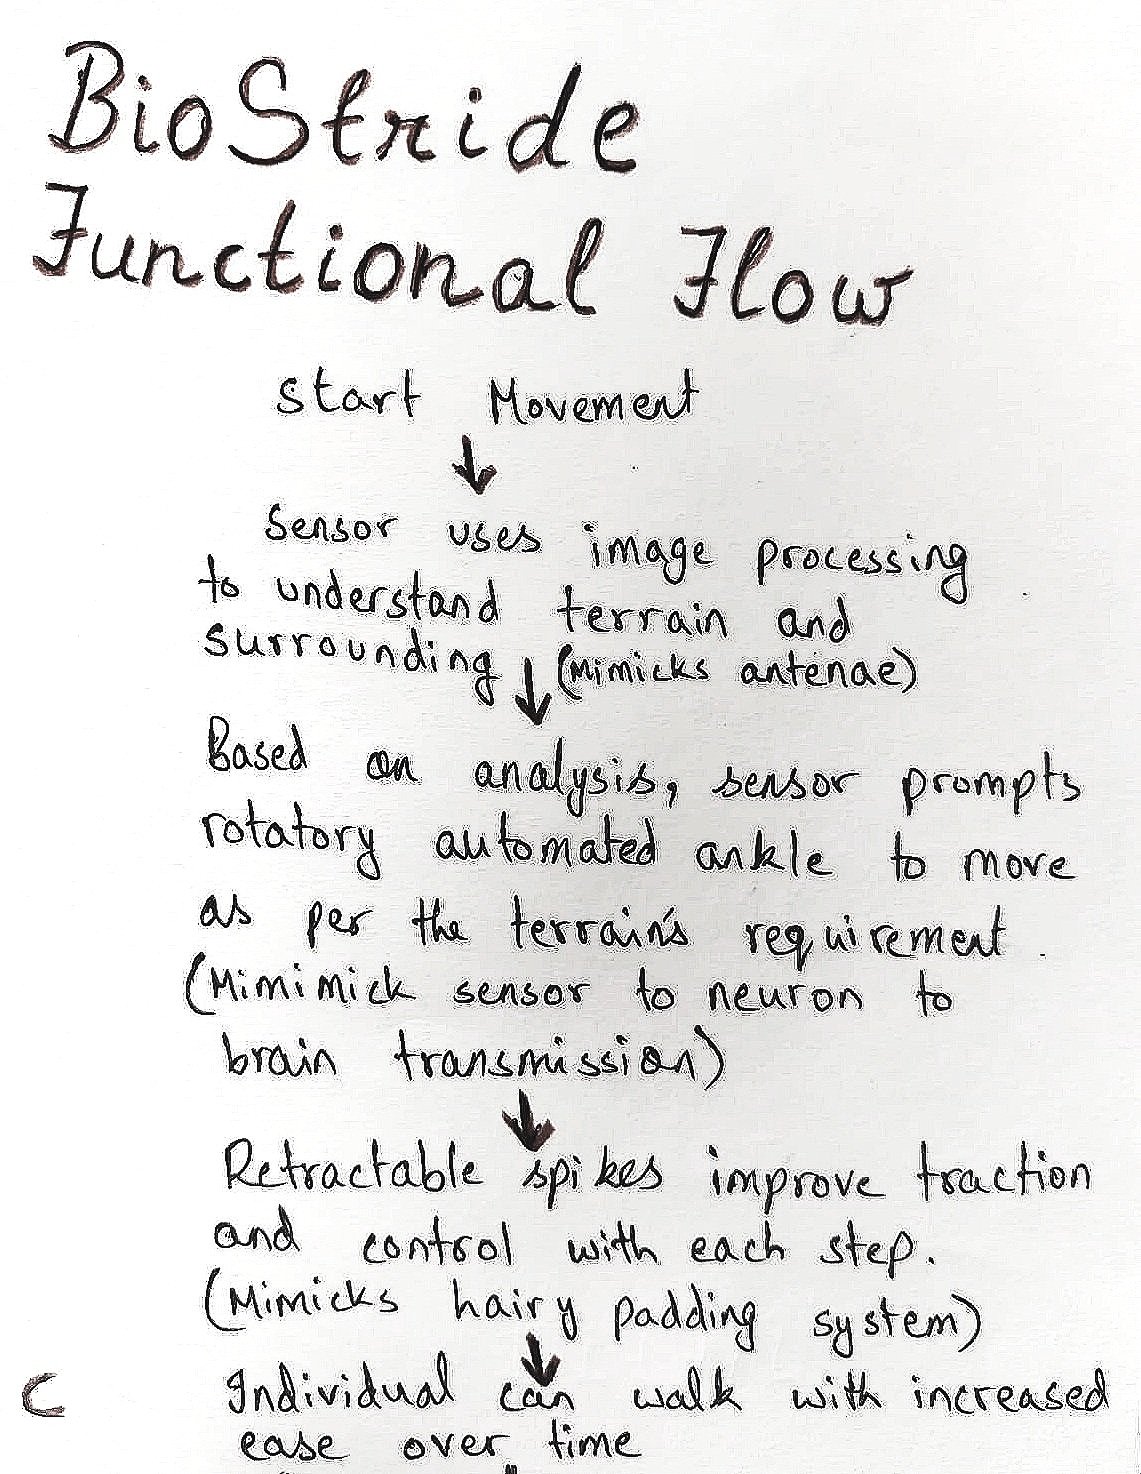 BioStride
Functional Flow
Start Movement
Sensor uses image processing
to understand terrain and
surrounding (Mimicks antenae)
Based on analysis, sensor prompts
rotatory automated ankle to move
as per the terrain's requirement.
(Mimimick sensor to neuron to
brain transmission)
Retractable spikes improve traction
and control with each step.
(Mimicks hairy padding system)
C Individual can walk with increased
ease over time